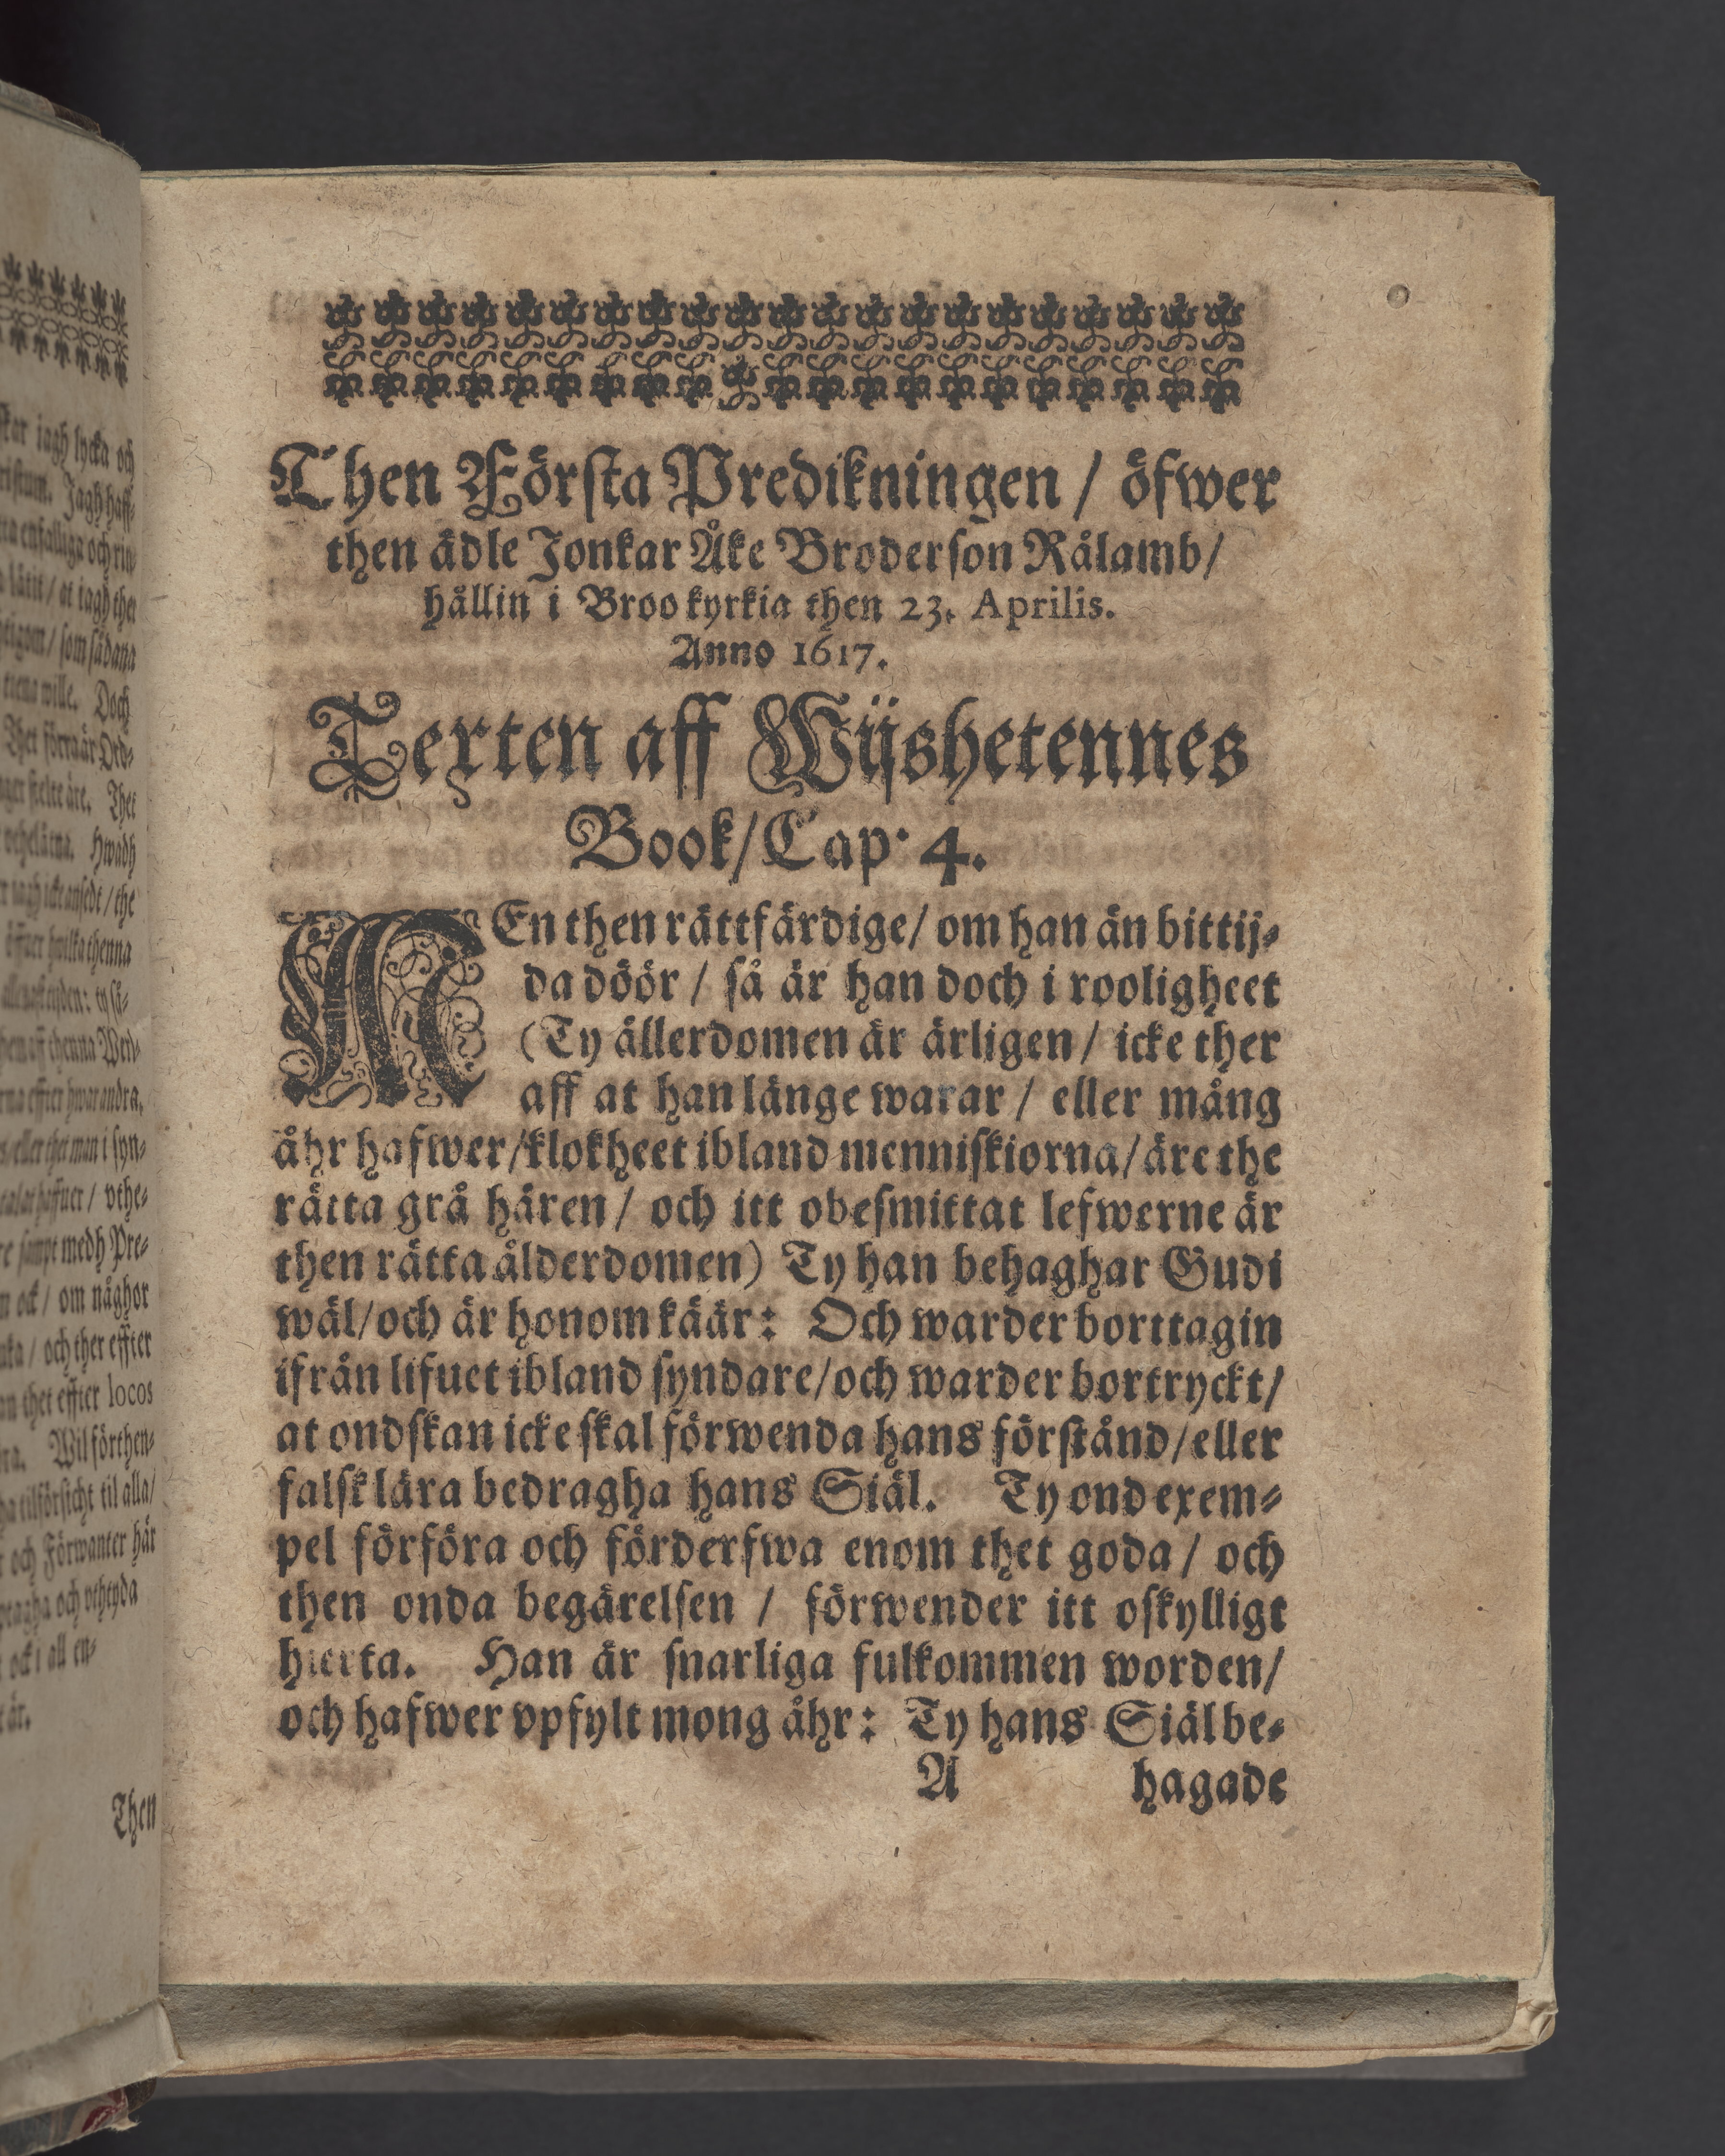 Then Första Predikningen / öfwer
then ädle Jonkar Åke Broderson Rålamb /
hållin i Broo kyrkia then 23. Aprilis.
Anno 1617.
Texten aff Wijshetennes
Book / Cap. 4.
MEn then rättfärdige / om han än bittij-
da döör / så är han doch i rooligheet
(Ty ållerdomen är ärligen / icke ther
aff at han länge warar / eller mång
åhr hafwer / klokheet ibland menniskiorna / äre the
rätta grå hären / och itt obesmittat lefwerne är
then rätta ålderdomen) Ty han behaghar Gudi
wäl / och är honom käär: Och warder borttagin
ifrån lifuet ibland syndare / och warder bortryckt /
at ondskan icke skal förwenda hans förstånd / eller
falsk lära bedragha hans Siäl. Ty ond exem-
pel förföra och förderfwa enom thet goda / och
then onda begärelsen / förwender itt oskylligt
hierta. Han är snarliga fulkommen worden /
och hafwer vpfylt mong åhr: Ty hans Siäl be-
A hagade
iagh lycka och
Jagh haff-
enfalliga och
at iagh thet
som sådana
wille. Doch
Thet förra är Ord-
äre. Thet
Hwadh
iagh icke ansedt / the
öffuer huilka thenna
thenna Pred-
effter hwar andra,
eller thet man i syn-
haffuer / vthe-
sampt medh Pre-
ock / om någhor
och ther effter
thet effter locos
Wil förthen-
tilförsicht til alla /
och Förwanter här
och vthtyda
ock i all en-
är.
Then